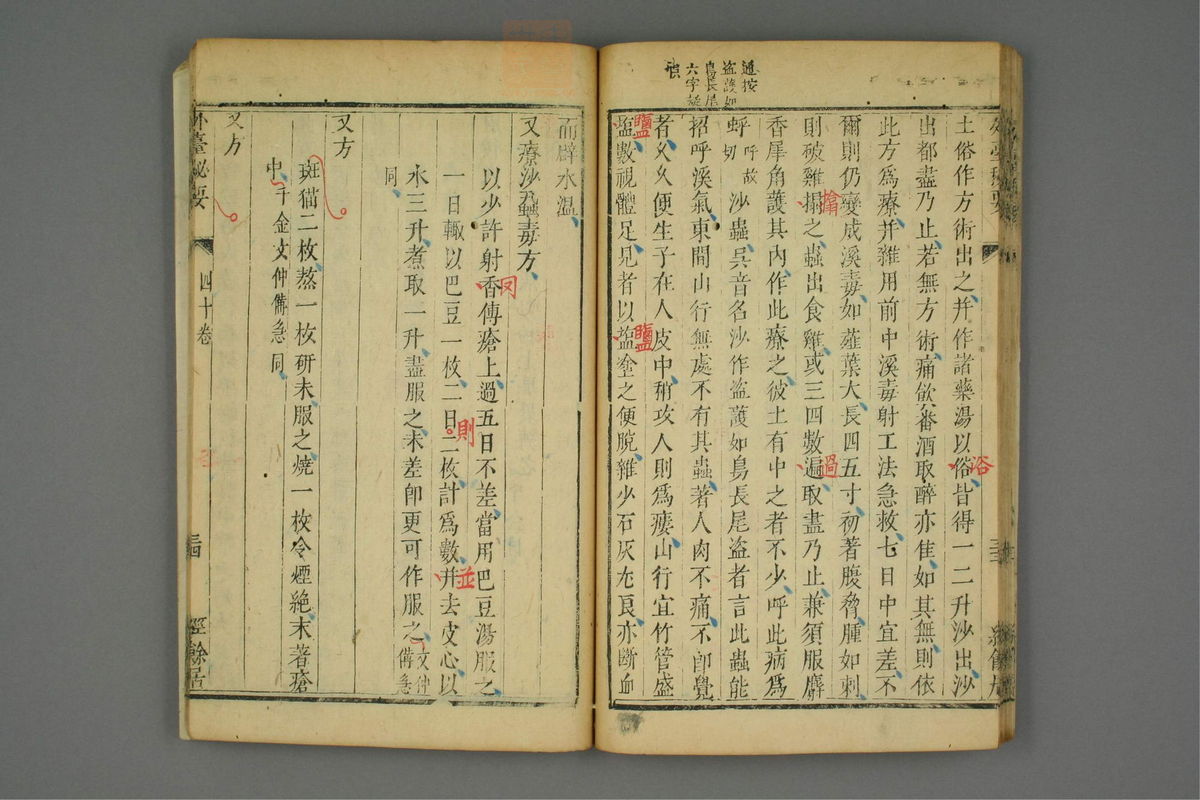 土俗作方術出之并作諸藥湯以俗皆得一二升沙出沙
出都盡乃止若無方術痛飲番酒取醉亦佳如其無則依
此方為療并雜用前中溪毒射工法急救七日中宜差不
爾則仍變成溪毒如薤葉大長四五寸初著腹脅腫如刺
則破雞搨之蟲出食雞或三四數遍取盡乃止兼須服麝
香犀角護其內作此療之彼土有中之者不少呼此病為
蚲呼故切沙蟲吳音名沙作盜護如鳥長尾盜者言此蟲能
招呼溪氣東間山行無處不有其蟲著人肉不痛不即覺
者久久便生子在人皮中稍攻人則為瘻山行宜竹管盛
塩數視體足見者以塩塗之便脫雜少石灰尤良亦斷血
鹽
鹽
搨
過
浴
通按
盜護如
鳥長尾
六字疑
悞
三三
而辟水溫
又療沙蝨毒方
以少許射香傅瘡上過五日不差當用巴豆湯服之
一日輙以巴豆一枚二日二枚計為數并去皮心以
水三升煮取一升盡服之未差即更可作服之文仲備急
同
又方
斑猫二枚熬一枚研末服之燒一枚令煙絶末著瘡
中千金文仲備急同
又方
則
並
外臺秘要
四十卷
三四
經餘居